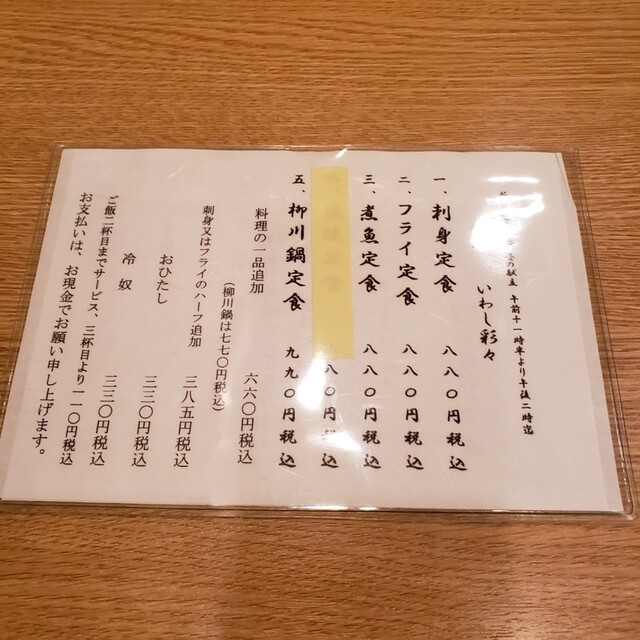 の献立 午前十一時半より午後二時迄
いわし彩々
一、刺身定食 八八〇円税込
二、フライ定食 八八〇円税込
三、煮魚定食 八八〇円税込
八〇円税込
五、柳川鍋定食 九九〇円税込
料理の一品追加 六六〇円税込
(柳川鍋は七七〇円税込)
刺身又はフライのハーフ追加 三八五円税込
おひたし 三三〇円税込
冷奴 三三〇円税込
ご飯二杯目までサービス、三杯目より一一〇円税込
お支払いは、お現金でお願い申し上げます。